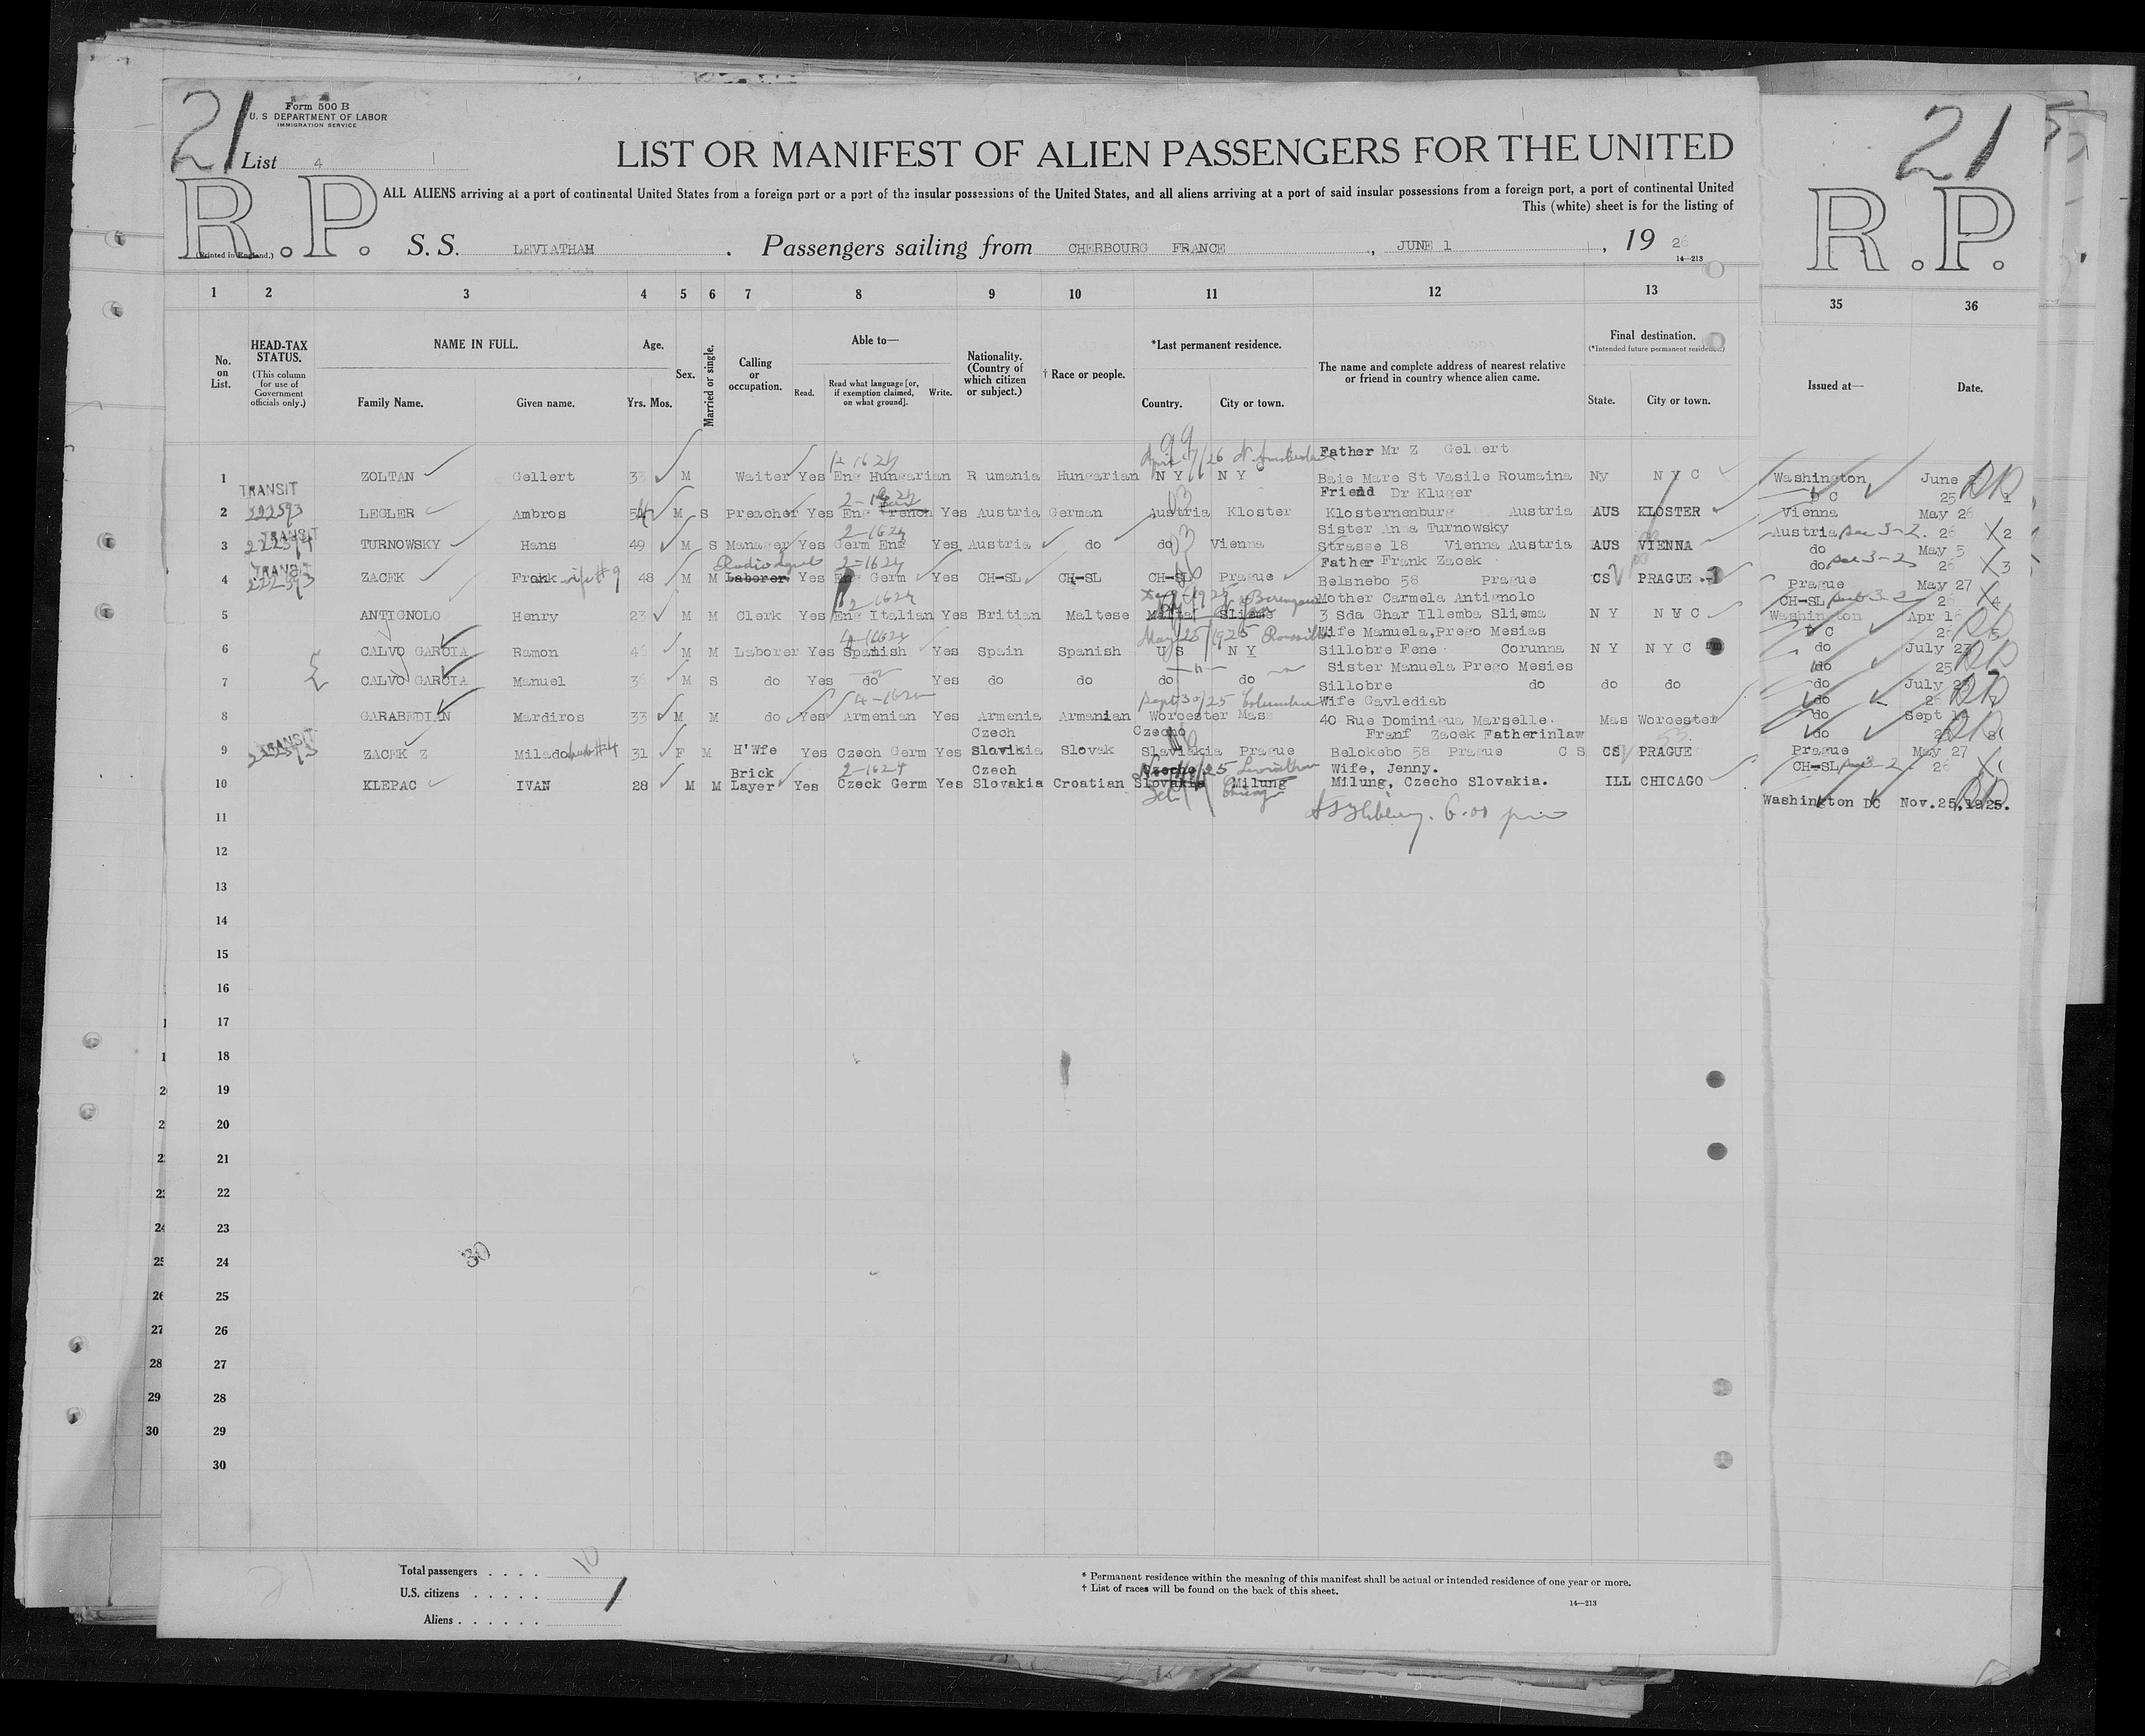 21
21
Form 500 B
U. S DEPARTMENT OF LABOR
IMMIGRATION SERVICE
List 4
LIST OR MANIFEST OF ALIEN PASSENGERS FOR THE UNITED
R.P.
R.P.
ALL ALIENS arriving at a port of continental United States from a foreign port or a port of the insular possessions of the United States, and all aliens arriving at a port of said insular possessions from a foreign port, a port of continental United
This (white) sheet is for the listing of
(Printed in England.)
S. S. LEVIATHAN . Passengers sailing from CHERBOURG FRANCE , JUNE 1 , 19 26
14—213
1 2 3 4 5 6 7 8 9 10 11 12 13 35 36
No. on List.
HEAD-TAX STATUS.
(This column for use of Government officials only.)
NAME IN FULL.
Family Name. Given name.
Age.
Yrs. Mos.
Sex.
Married or single.
Calling or occupation.
Able to—
Read. Read what language [or, if exemption claimed, on what ground]. Write.
Nationality. (Country of which citizen or subject.)
† Race or people.
*Last permanent residence.
Country. City or town.
The name and complete address of nearest relative or friend in country whence alien came.
Final destination.
(*Intended future permanent residence.)
State. City or town.
Issued at— Date.
99
Father Mr Z Gellert
1 ZOLTAN Gellert 33 M Waiter Yes Eng Hungarian R umania Hungarian N Y N Y Baie Mare St Vasile Roumaina Ny N Y C Washington June
TRANSIT Friend Dr Kluger D C 25 1
2 LEGLER Ambros 54 M S Preacher Yes Eng French Yes Austria German Austria Kloster Klosternenburg Austria AUS KLOSTER Vienna May 26
TRANSIT 2-1624 Sister Anna Turnowsky Austria Sec 3-2. 26 2
3 TURNOWSKY Hans 49 M S Manager Yes Germ Eng Yes Austria do do Vienna Strasse 18 Vienna Austria AUS VIENNA do May 5
TRANSIT 2-1624 Father Frank Zacek do Sec 3-2 26 3
4 ZACEK Frank wife #9 48 M M Laborer Yes Eng Germ Yes CH-SL CH-SL CH-SL Prague Belsnebo 58 Prague CS PRAGUE Prague May 27
2-1624 Mother Carmela Antignolo CH-SL 26 4
5 ANTIGNOLO Henry 23 M M Clerk Yes Eng Italian Yes Britian Maltese Malta Sliema 3 Sda Ghar Illemba Sliema N Y N Y C Washington Apr 16
4-1624 May 25/1925 Wife Manuela,Prego Mesias D C 26 5
6 CALVO GARCIA Ramon 46 M M Laborer Yes Spanish Yes Spain Spanish U S N Y Sillobre Fene Corunna N Y N Y C do July 27
Sister Manuela Prego Mesies do 25
7 CALVO GARCIA Manuel 36 M S do Yes do Yes do do do do Sillobre do do do do July
4-1624 Sept 30/25 Columbia Wife Gavlediab do
8 GARABEDIAN Mardiros 33 M M do Yes Armenian Yes Armenia Armanian Worcester Mass 40 Rue Dominiqua Marselle. Mas Worcester do Sept
TRANSIT Czech Czecho Franf Zacek Fatherinlaw do
9 ZACEK Z Milado 31 F M H'Wfe Yes Czech Germ Yes Slavikia Slovak Slaviakia Prague Belokebo 58 Prague C S CS PRAGUE Prague May 27
Brick 2-1624 Czech Czecho Wife, Jenny. CH-SL 26
10 KLEPAC IVAN 28 M M Layer Yes Czeck Germ Yes Slovakia Croatian Slovakia Milung Milung, Czecho Slovakia. ILL CHICAGO
Chicago
Washington DC Nov.25,1925.
11
12
13
14
15
16
17
18
19
20
21
22
23
24
25
26
27
28
29
30
30
Total passengers . . . . 10
U.S. citizens . . . . .
Aliens . . . . . .
* Permanent residence within the meaning of this manifest shall be actual or intended residence of one year or more.
† List of races will be found on the back of this sheet.
14—213